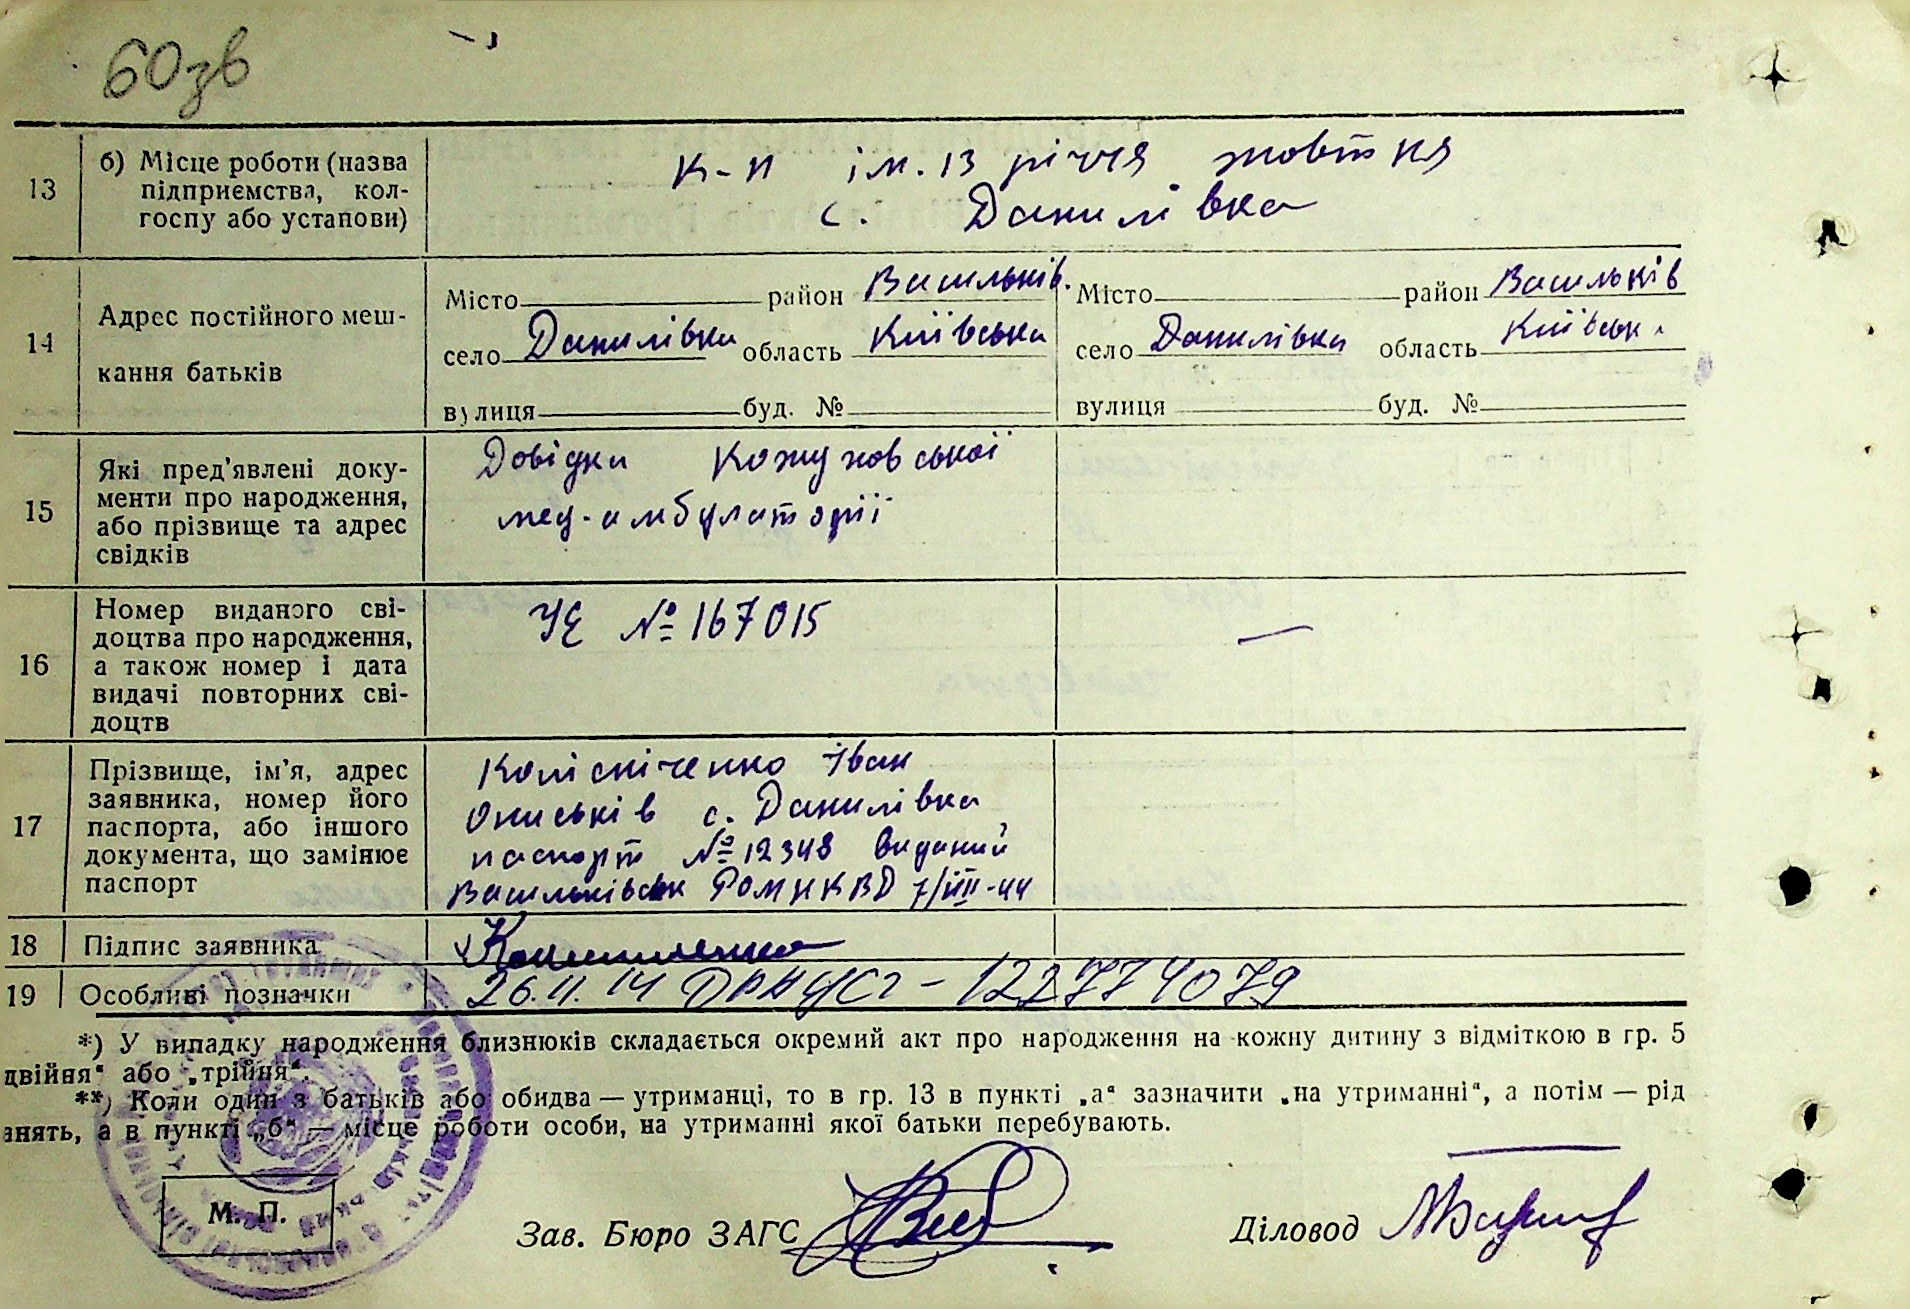 60зв
13 б) Місце роботи (назва
підприємства, кол-
госпу або установи)
К-п ім. 13 річчя жовтня
с. Данилівка
14 Адрес постійного меш-
кання батьків
Місто район Васильків. Місто район Васильків
село Данилівка область Київська село Данилівка область Київськ
вулиця буд. № вулиця буд. №
15 Які пред'явлені доку-
менти про народження,
або прізвище та адрес
свідків
Довідки Кожуховської
мед-амбулаторії
16 Номер виданого сві-
доцтва про народження,
а також номер і дата
видачі повторних сві-
доцтв
УЄ № 167015 —
17 Прізвище, ім'я, адрес
заявника, номер його
паспорта, або іншого
документа, що замінює
паспорт
Колісніченко Іван
Ониськів с. Данилівка
паспорт № 12348 виданий
Васильківськ РОМНКВД 7/III-44
18 Підпис заявника
19 Особливі позначки 26.11.14 ДРАЦСГ - 122774079
*) У випадку народження близнюків складається окремий акт про народження на кожну дитину з відміткою в гр. 5
двійня" або „трійня".
**) Коли один з батьків або обидва — утриманці, то в гр. 13 в пункті „а" зазначити „на утриманні", а потім — рід
знять, а в пункті „б" — місце роботи особи, на утриманні якої батьки перебувають.
М. П.
Зав. Бюро ЗАГС
Діловод